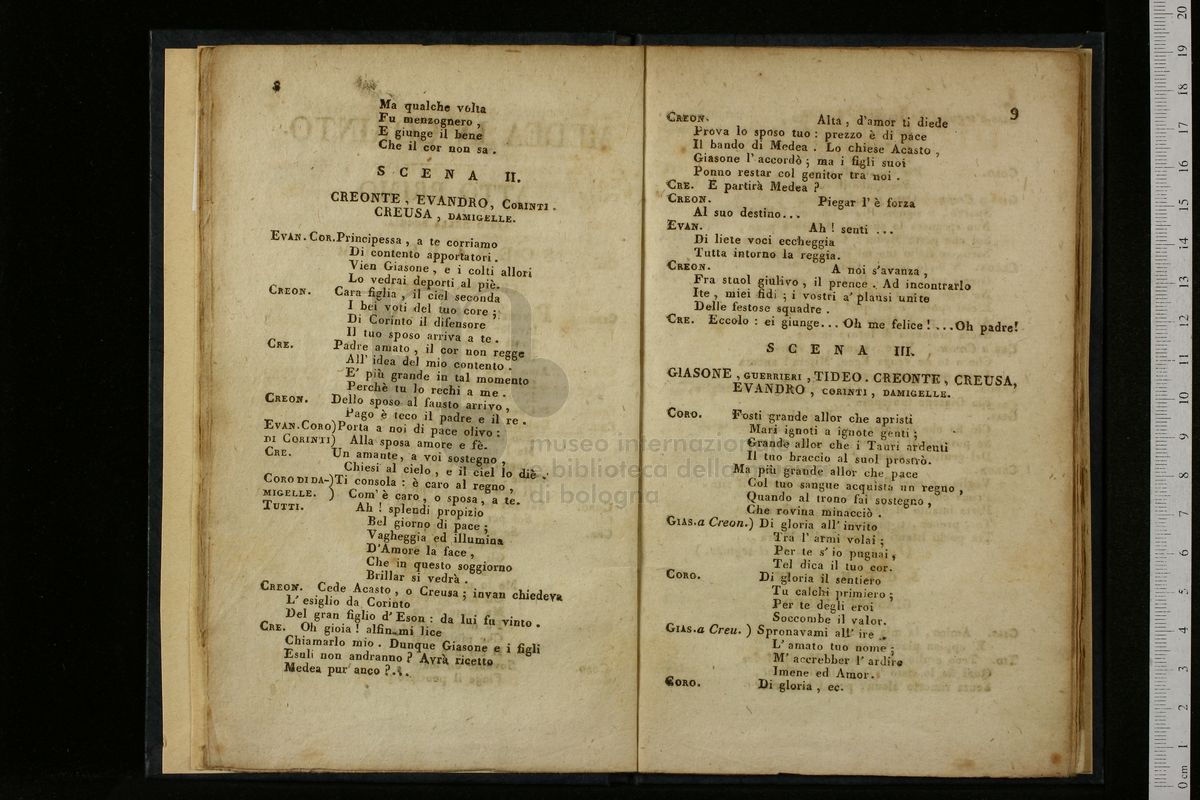 8
Ma qualche volta
Fu menzognero ,
E giunge il bene
Che il cor non sa .
SCENA II.
CREONTE , EVANDRO, CORINTI .
CREUSA , DAMIGELLE.
EVAN. COR. Principessa , a te corriamo
Di contento apportatori .
Vien Giasone , e i colti allori
Lo vedrai deporti al piè.
CREON. Cara figlia , il ciel seconda
I bei voti del tuo core ;
Di Corinto il difensore
Il tuo sposo arriva a te .
CRE. Padre amato , il cor non regge
All' idea del mio contento .
E' più grande in tal momento
Perchè tu lo rechi a me .
CREON. Dello sposo al fausto arrivo ,
Pago è teco il padre e il re .
EVAN. CORO) Porta a noi di pace olivo :
DI CORINTI) Alla sposa amore e fè.
CRE. Un amante, a voi sostegno ,
Chiesi al cielo , e il ciel lo diè .
CORO DI DA-) Ti consola : è caro al regno ,
MIGELLE. ) Com' è caro , o sposa , a te.
TUTTI. Ah ! splendi propizio
Bel giorno di pace ;
Vagheggia ed illumina
D'Amore la face ,
Che in questo soggiorno
Brillar si vedrà .
CREON. Cede Acasto , o Creusa ; invan chiedeva
L' esiglio da Corinto
Del gran figlio d' Eson : da lui fu vinto .
CRE. Oh gioia ! alfin mi lice
Chiamarlo mio . Dunque Giasone e i figli
Esuli non andranno ? Avrà ricetto
Medea pur' anco ?...
9
CREON. Alta , d'amor ti diede
Prova lo sposo tuo : prezzo è di pace
Il bando di Medea . Lo chiese Acasto ,
Giasone l' accordò ; ma i figli suoi
Ponno restar col genitor tra noi .
CRE. E partirà Medea ?
CREON. Piegar l' è forza
Al suo destino...
EVAN. Ah ! senti ...
Di liete voci eccheggia
Tutta intorno la reggia.
CREON. A noi s'avanza ,
Fra stuol giulivo , il prence . Ad incontrarlo
Ite , miei fidi ; i vostri a' plausi unite
Delle festose squadre .
CRE. Eccolo : ei giunge... Oh me felice ! ...Oh padre!
SCENA III.
GIASONE , GUERRIERI , TIDEO . CREONTE , CREUSA,
EVANDRO , CORINTI , DAMIGELLE.
CORO. Fosti grande allor che apristi
Mari ignoti a ignote genti ;
Grande allor che i Tauri ardenti
Il tuo braccio al suol prostrò.
Ma più grande allor che pace
Col tuo sangue acquista un regno ,
Quando al trono fai sostegno ,
Che rovina minacciò .
GIAS. a Creon.) Di gloria all' invito
Tra l' armi volai ;
Per te s' io pugnai ,
Tel dica il tuo cor.
CORO. Di gloria il sentiero
Tu calchi primiero ;
Per te degli eroi
Soccombe il valor.
GIAS. a Creu. ) Spronavami all' ire
L' amato tuo nome ;
M' accrebber l' ardire
Imene ed Amor.
CORO. Di gloria , ec.
museo internazion
e biblioteca della
di bologna
0 cm 1 2 3 4 5 6 7 8 9 10 11 12 13 14 15 16 17 18 19 20